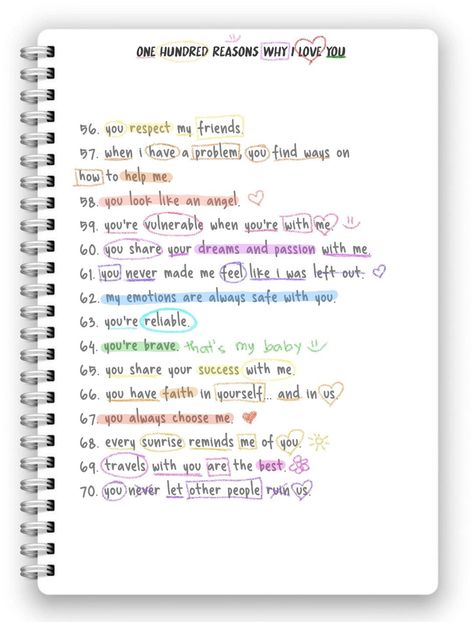 ONE HUNDRED REASONS WHY I LOVE YOU
56. you respect my friends.
57. when i have a problem, you find ways on
how to help me.
58. you look like an angel.
59. you're vulnerable when you're with me.
60. you share your dreams and passion with me.
61. you never made me feel like i was left out.
62. my emotions are always safe with you.
63. you're reliable.
64. you're brave. that's my baby
65. you share your success with me.
66. you have faith in yourself... and in us.
67. you always choose me.
68. every sunrise reminds me of you.
69. travels with you are the best.
70. you never let other people ruin us.